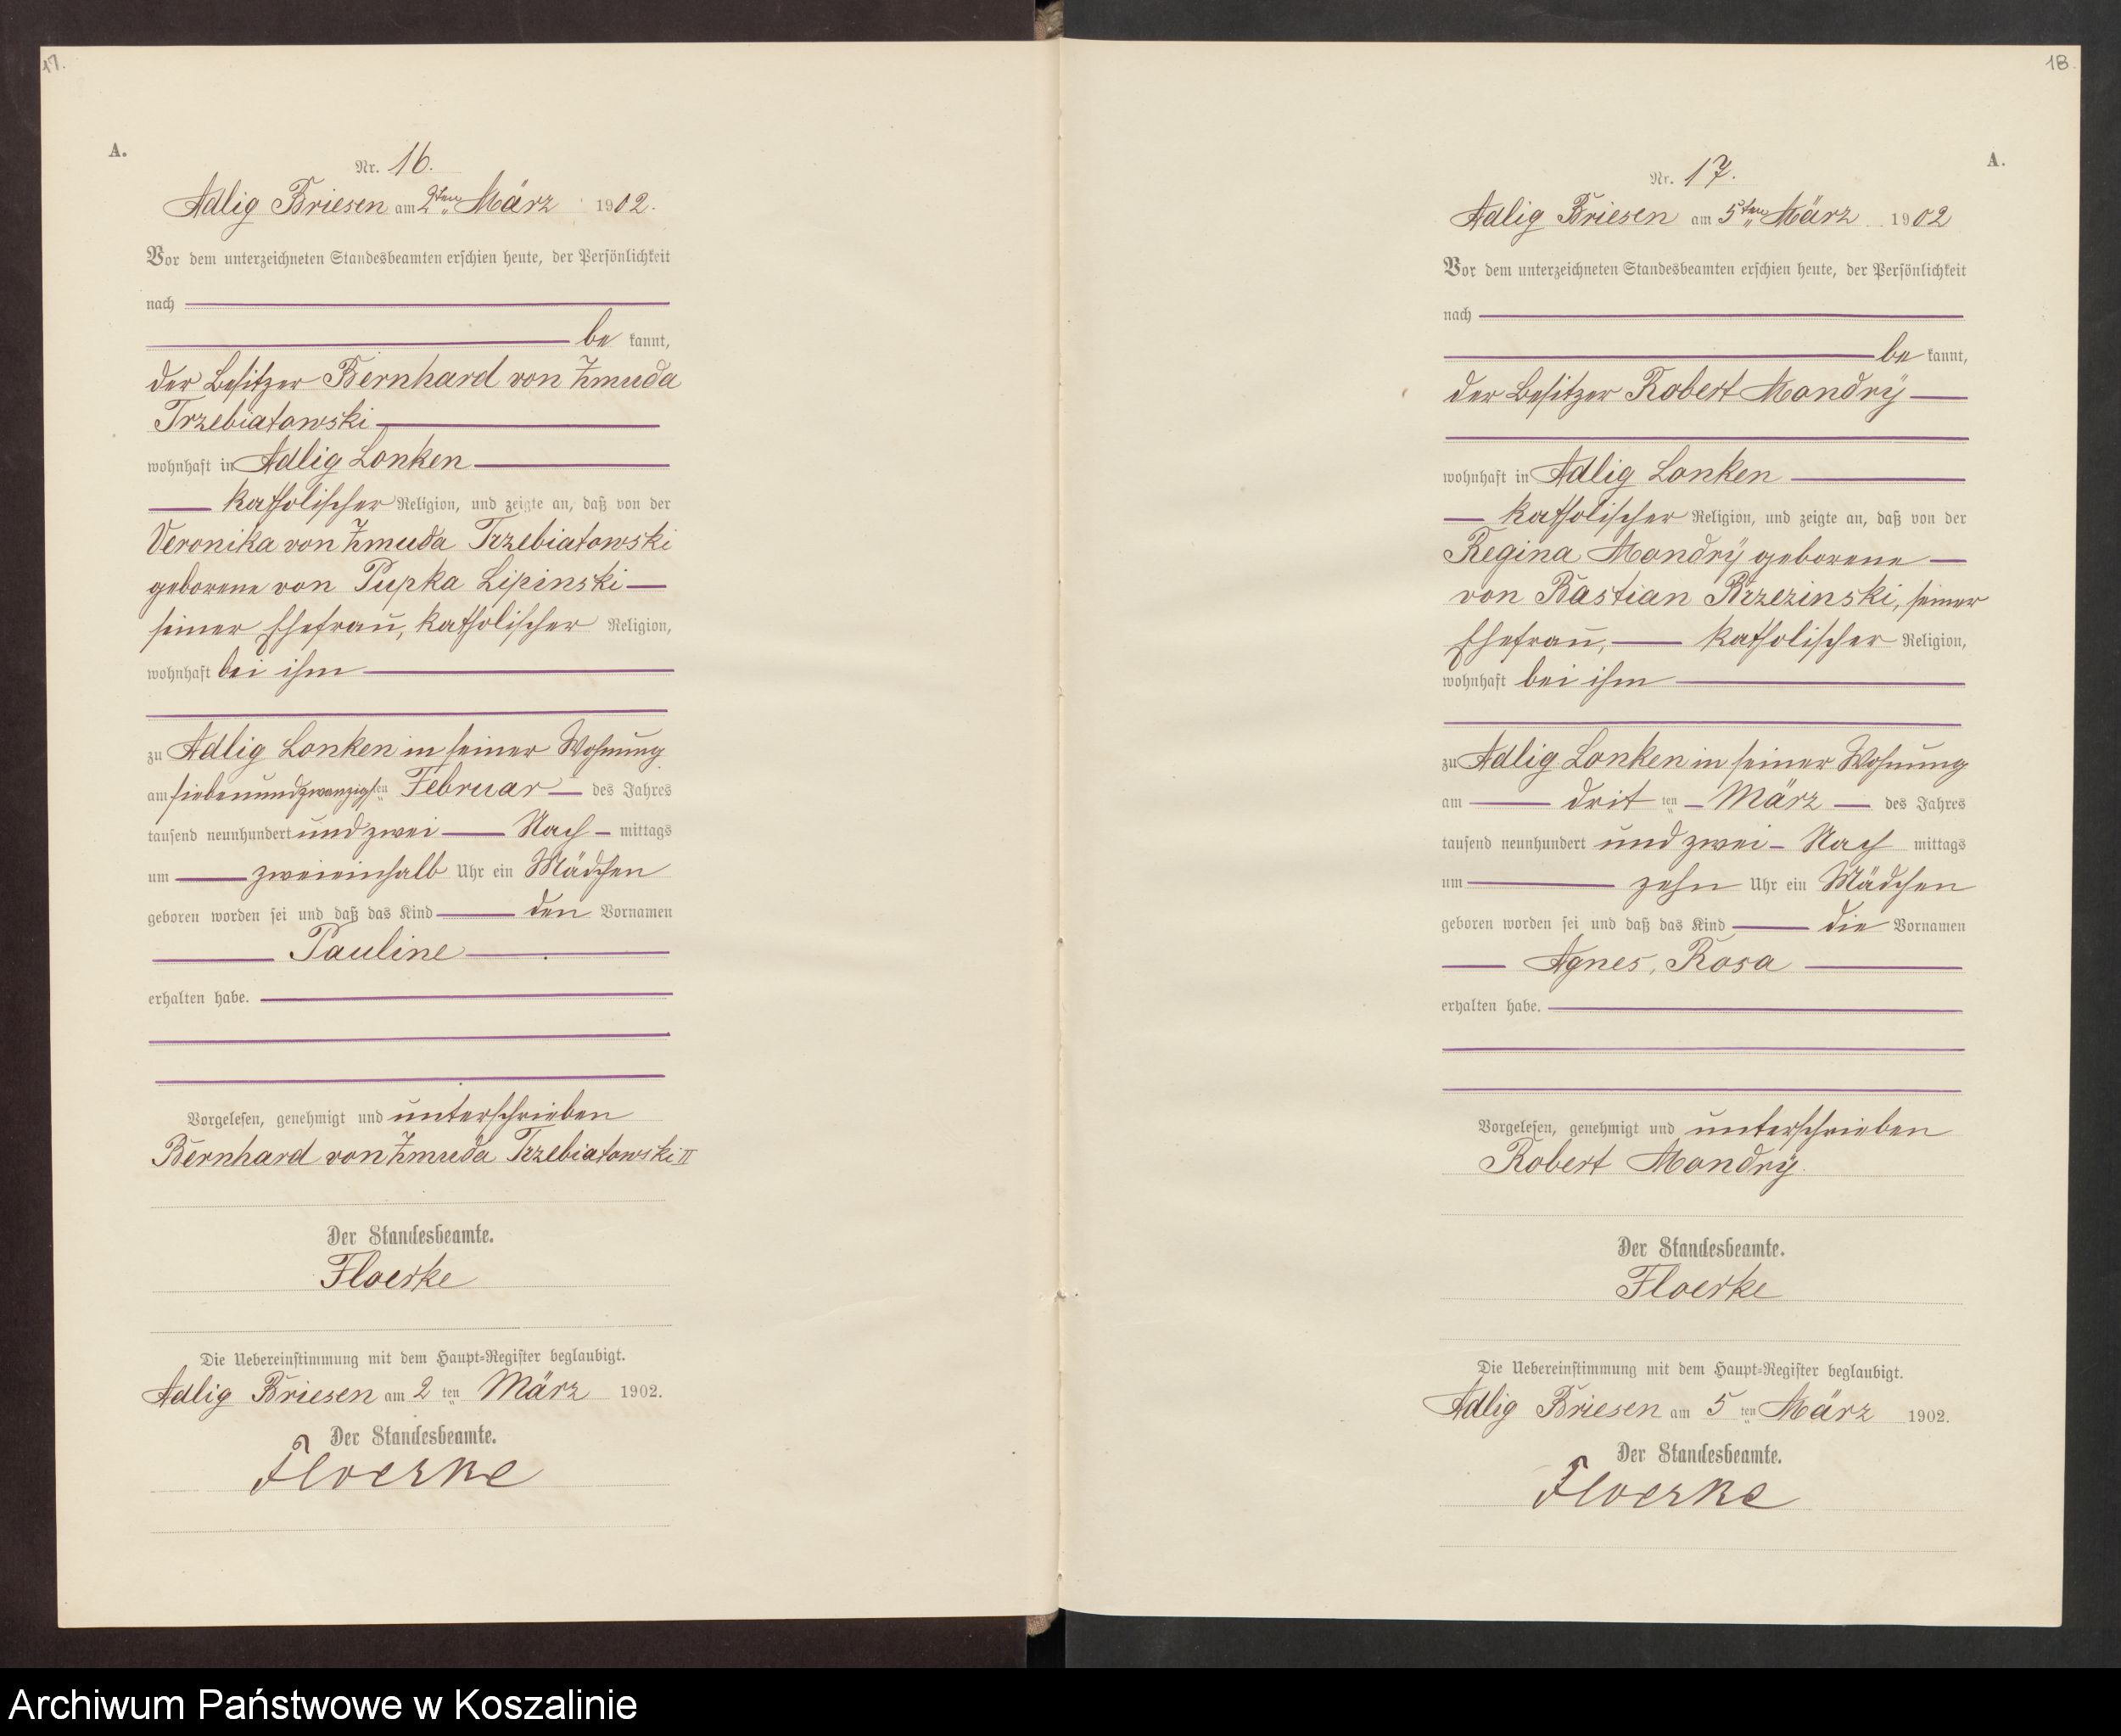 17.
A.
Nr. 16.
Adlig Briesen am 2ten März 1902.
Vor dem unterzeichneten Standesbeamten erschien heute, der Persönlichkeit
nach
be kannt,
der Besitzer Bernhard von Zmuda
Trzebiatowski
wohnhaft in Adlig Lonken
katholischer Religion, und zeigte an, daß von der
Veronika von Zmuda Trzebiatowski
geborene von Pupka Lipinski
seiner Ehefrau, katholischer Religion,
wohnhaft bei ihm
zu Adlig Lonken in seiner Wohnung
am siebenundzwanzigsten Februar des Jahres
tausend neunhundert und zwei Nach mittags
um zweieinhalb Uhr ein Mädchen
geboren worden sei und daß das Kind den Vornamen
Pauline
erhalten habe.
Vorgelesen, genehmigt und unterschrieben
Bernhard von Zmuda Trzebiatowski II
Der Standesbeamte.
Floerke
Die Uebereinstimmung mit dem Haupt-Register beglaubigt.
Adlig Briesen am 2 ten März 1902.
Der Standesbeamte.
Floerke
18.
A.
Nr. 17.
Adlig Briesen am 5ten März 1902
Vor dem unterzeichneten Standesbeamten erschien heute, der Persönlichkeit
nach
be kannt,
der Besitzer Robert Mondrÿ
wohnhaft in Adlig Lonken
katholischer Religion, und zeigte an, daß von der
Regina Mondrÿ geborene
von Bastian Brzezinski, seiner
Ehefrau, katholischer Religion,
wohnhaft bei ihm
zu Adlig Lonken in seiner Wohnung
am drit ten März des Jahres
tausend neunhundert und zwei Nach mittags
um zehn Uhr ein Mädchen
geboren worden sei und daß das Kind die Vornamen
Agnes, Rosa
erhalten habe.
Vorgelesen, genehmigt und unterschrieben
Robert Mondrÿ
Der Standesbeamte.
Floerke
Die Uebereinstimmung mit dem Haupt-Register beglaubigt.
Adlig Briesen am 5 ten März 1902.
Der Standesbeamte.
Floerke
Archiwum Państwowe w Koszalinie